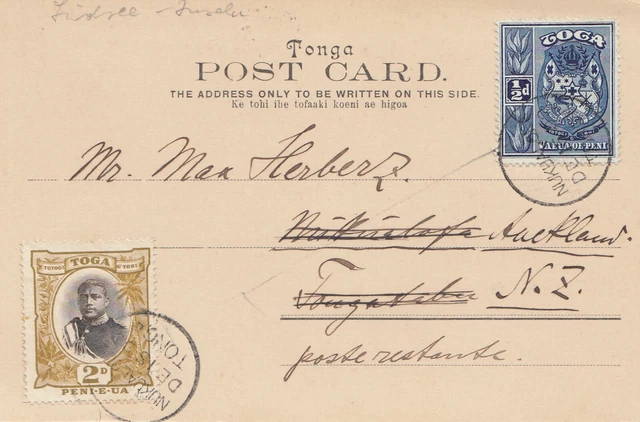 Südsee-Inseln
Tonga
POST CARD.
THE ADDRESS ONLY TO BE WRITTEN ON THIS SIDE.
Ke tohi ihe tofaaki koeni ae higoa
TOGA
½d
VAEUA·OE·PENI
NUKUA
Mr. Max Herberz.
Nukualofa Auckland.
Tongatabu N.Z.
poste restante.
TOTOGI TOGA U TOHI
2D
PENI-E-UA
NUKUA
DE 15
TONGA